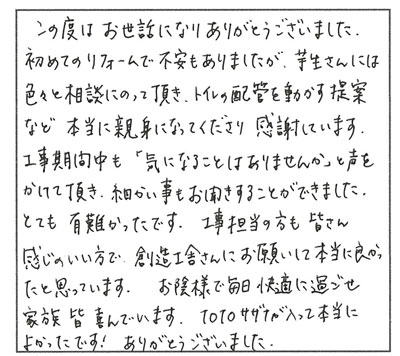 この度は お世話になり ありがとうございました.
初めてのリフォームで 不安もありましたが、芋生さんには
色々と相談にのって頂き、トイレの配管を動かす提案
など 本当に親身になってくださり 感謝しています.
工事期間中も「気になることはありませんか」と声を
かけて頂き、細かい事もお聞きすることができました.
とても 有難かったです. 工事担当の方も 皆さん
感じのいい方で、創造工舎さんにお願いして本当に良かっ
たと思っています. お陰様で毎日 快適に過ごせ
家族 皆 喜んでいます. TOTO サザナが入って本当に
よかったです! ありがとうございました.